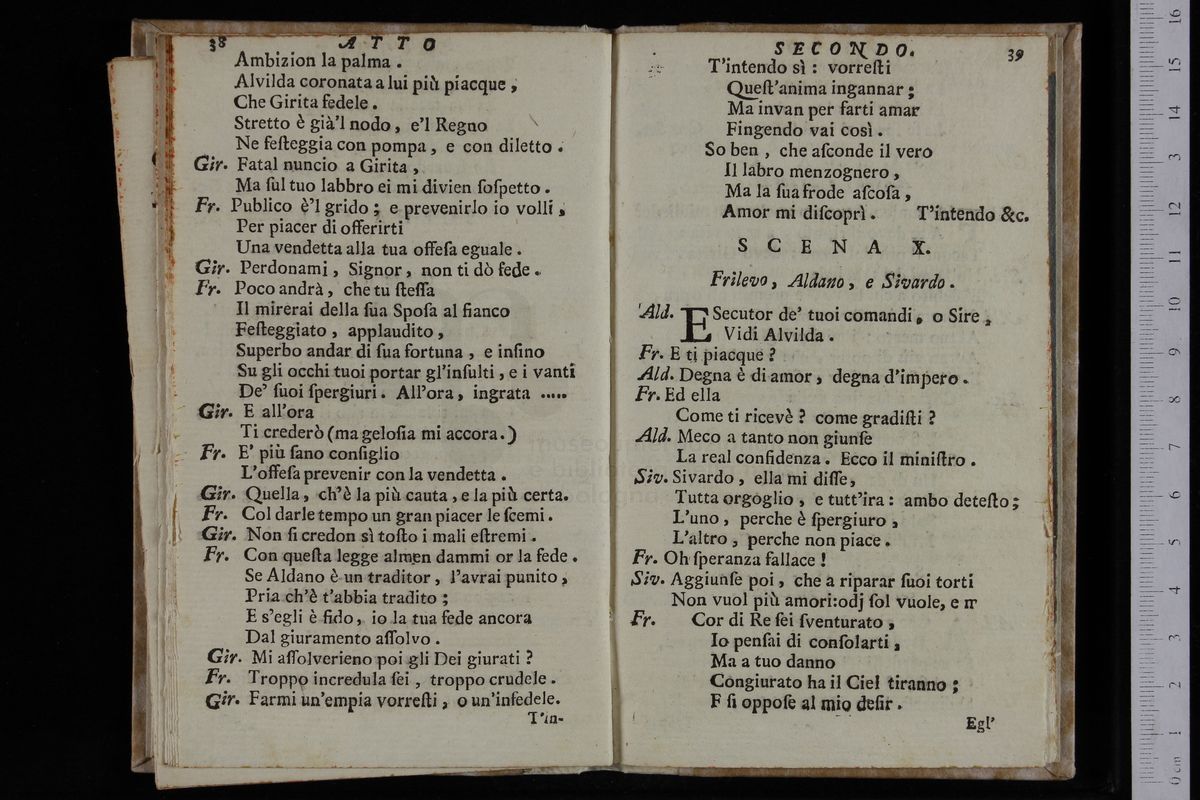 38 ATTO
Ambizion la palma.
Alvilda coronata a lui più piacque,
Che Girita fedele.
Stretto è già'l nodo, e'l Regno
Ne feſteggia con pompa, e con diletto.
Gir. Fatal nuncio a Girita,
Ma ſul tuo labbro ei mi divien ſoſpetto.
Fr. Publico è'l grido; e prevenirlo io volli,
Per piacer di offerirti
Una vendetta alla tua offeſa eguale.
Gir. Perdonami, Signor, non ti dò fede.
Fr. Poco andrà, che tu ſteſſa
Il mirerai della ſua Spoſa al fianco
Feſteggiato, applaudito,
Superbo andar di ſua fortuna, e inſino
Su gli occhi tuoi portar gl'inſulti, e i vanti
De' ſuoi ſpergiuri. All'ora, ingrata .....
Gir. E all'ora
Ti crederò (ma geloſia mi accora.)
Fr. E' più ſano conſiglio
L'offeſa prevenir con la vendetta.
Gir. Quella, ch'è la più cauta, e la più certa.
Fr. Col darle tempo un gran piacer le ſcemi.
Gir. Non ſi credon sì toſto i mali eſtremi.
Fr. Con queſta legge almen dammi or la fede.
Se Aldano è un traditor, l'avrai punito,
Pria ch'è t'abbia tradito;
E s'egli è fido, io la tua fede ancora
Dal giuramento aſſolvo.
Gir. Mi aſſolverieno poi gli Dei giurati?
Fr. Troppo incredula ſei, troppo crudele.
Gir. Farmi un'empia vorreſti, o un'infedele.
T'in-
SECONDO. 39
T'intendo sì: vorreſti
Queſt'anima ingannar;
Ma invan per farti amar
Fingendo vai così.
So ben, che aſconde il vero
Il labro menzognero,
Ma la ſua frode aſcoſa,
Amor mi diſcoprì. T'intendo &c.
SCENA X.
Frilevo, Aldano, e Sivardo.
Ald. ESecutor de' tuoi comandi, o Sire,
Vidi Alvilda.
Fr. E ti piacque?
Ald. Degna è di amor, degna d'impero.
Fr. Ed ella
Come ti ricevè? come gradiſti?
Ald. Meco a tanto non giunſe
La real confidenza. Ecco il miniſtro.
Siv. Sivardo, ella mi diſſe,
Tutta orgoglio, e tutt'ira: ambo deteſto;
L'uno, perche è ſpergiuro,
L'altro, perche non piace.
Fr. Oh ſperanza fallace!
Siv. Aggiunſe poi, che a riparar ſuoi torti
Non vuol più amori:odj ſol vuole, e
Fr. Cor di Re ſei ſventurato,
Io penſai di conſolarti,
Ma a tuo danno
Congiurato ha il Ciel tiranno;
E ſi oppoſe al mio deſir.
Egl'